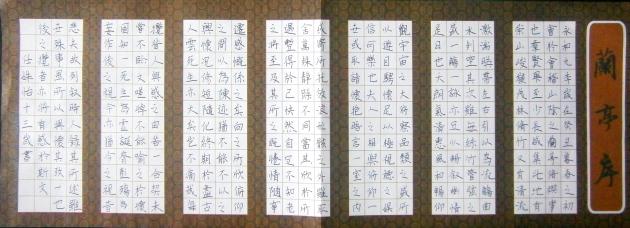 蘭亭序
永和九年歲在癸丑暮春之初
會於會稽山陰之蘭亭脩禊事
也羣賢畢至少長咸集此地有
崇山峻嶺茂林脩竹又有清流
激湍暎帶左右引以為流觴曲
水列坐其次雖無絲竹管弦之
盛一觴一詠亦足以暢敘幽情
是日也天朗氣清惠風和暢仰
觀宇宙之大俯察品類之盛所
以遊目騁懷足以極視聽之娛
信可樂也夫人之相與俯仰一
世或取諸懷抱晤言一室之內
或因寄所託放浪形骸之外雖趣
舍萬殊靜躁不同當其欣於所
遇蹔得於己快然自足不知老
之將至及其所之既惓情隨事
遷感慨係之矣向之所欣俛仰
之間以為陳迹猶不能不以之
興懷況脩短隨化終期於盡古
人云死生亦大矣豈不痛哉每
攬昔人興感之由若合一契未
嘗不臨文嗟悼不能喻之於懷
固知一死生為虛誕齊彭殤為
妄作後之視今亦猶今之視昔
悲夫故列敘時人錄其所述雖
世殊事異所以興懷其致一也
後之攬者亦將有感於斯文
任姝怡十三歲書